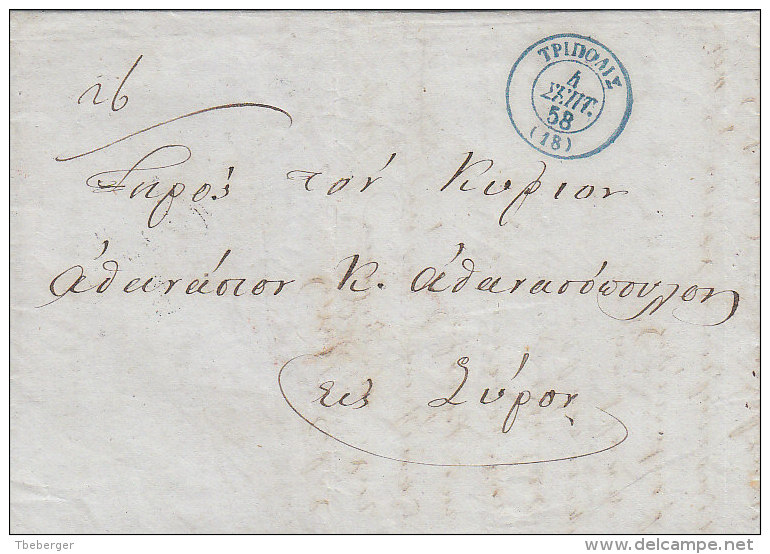 26
ΤΡΙΠΟΛΙΣ
4
ΣΕΠΤ.
58
(18)
Πρὸς τὸν Κύριον
Ἀθανάσιον Κ. Ἀθανασόπουλον
εἰς Σύρον
Tbeberger
delcampe.net